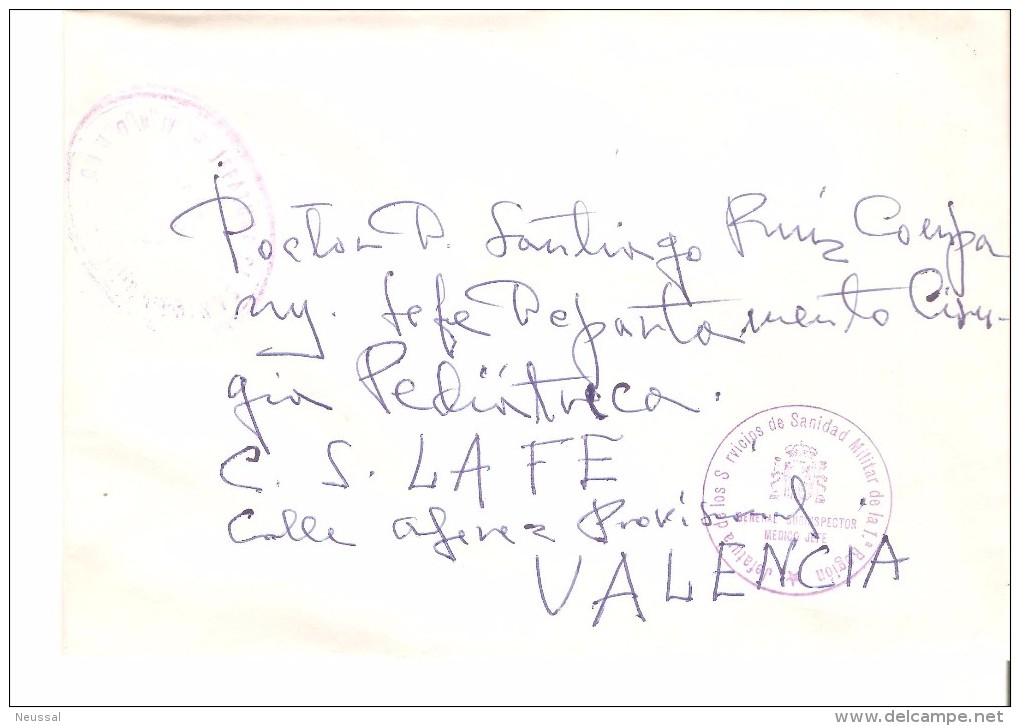 Doctor D. Santiago Ruíz Compa
ny. Jefe Departamento Ciru-
gia Pediátrica.
C. S. LA FE
Calle Alferez Provisional
VALENCIA
Jefatura de los S rvicios de Sanidad Militar de la 1.ª Region
GENERAL SUBINSPECTOR
MEDICO JEFE
Neussal
delcampe.net